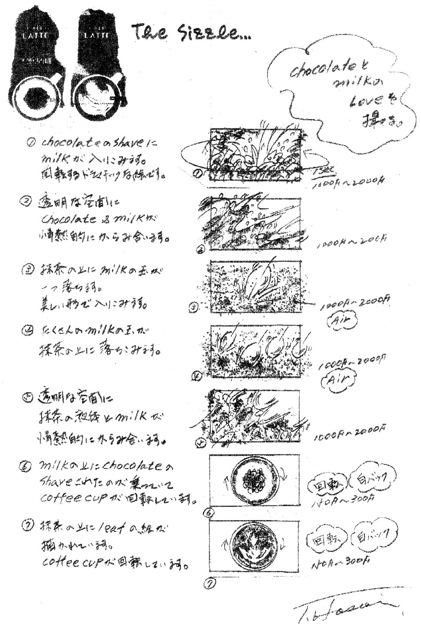 LATTE
LATTE
The Sizzle...
chocolateと
milkの
Loveを
撮る。
① chocolateのshaveに
milkが入りこみます。
② 透明な空間に
chocolate & milkが
情熱的にからみ合います。
1000円~2000円
③ 抹茶の上にmilkの玉が
一つ落ちます。
美しい形で入りこみます。
1000円~2000円
Air
④ たくさんのmilkの玉が
抹茶の上に落ちこみます。
1000円~2000円
Air
⑤ 透明な空間に
抹茶の粉末とmilkが
情熱的にからみ合います。
1000円~2000円
⑥ milkの上にchocolateの
shaveされたのが乗っていて
coffee cupが回転しています。
回転
白バック
⑦ 抹茶の上にleafの絵が
描かれています。
coffee cupが回転しています。
回転
白バック